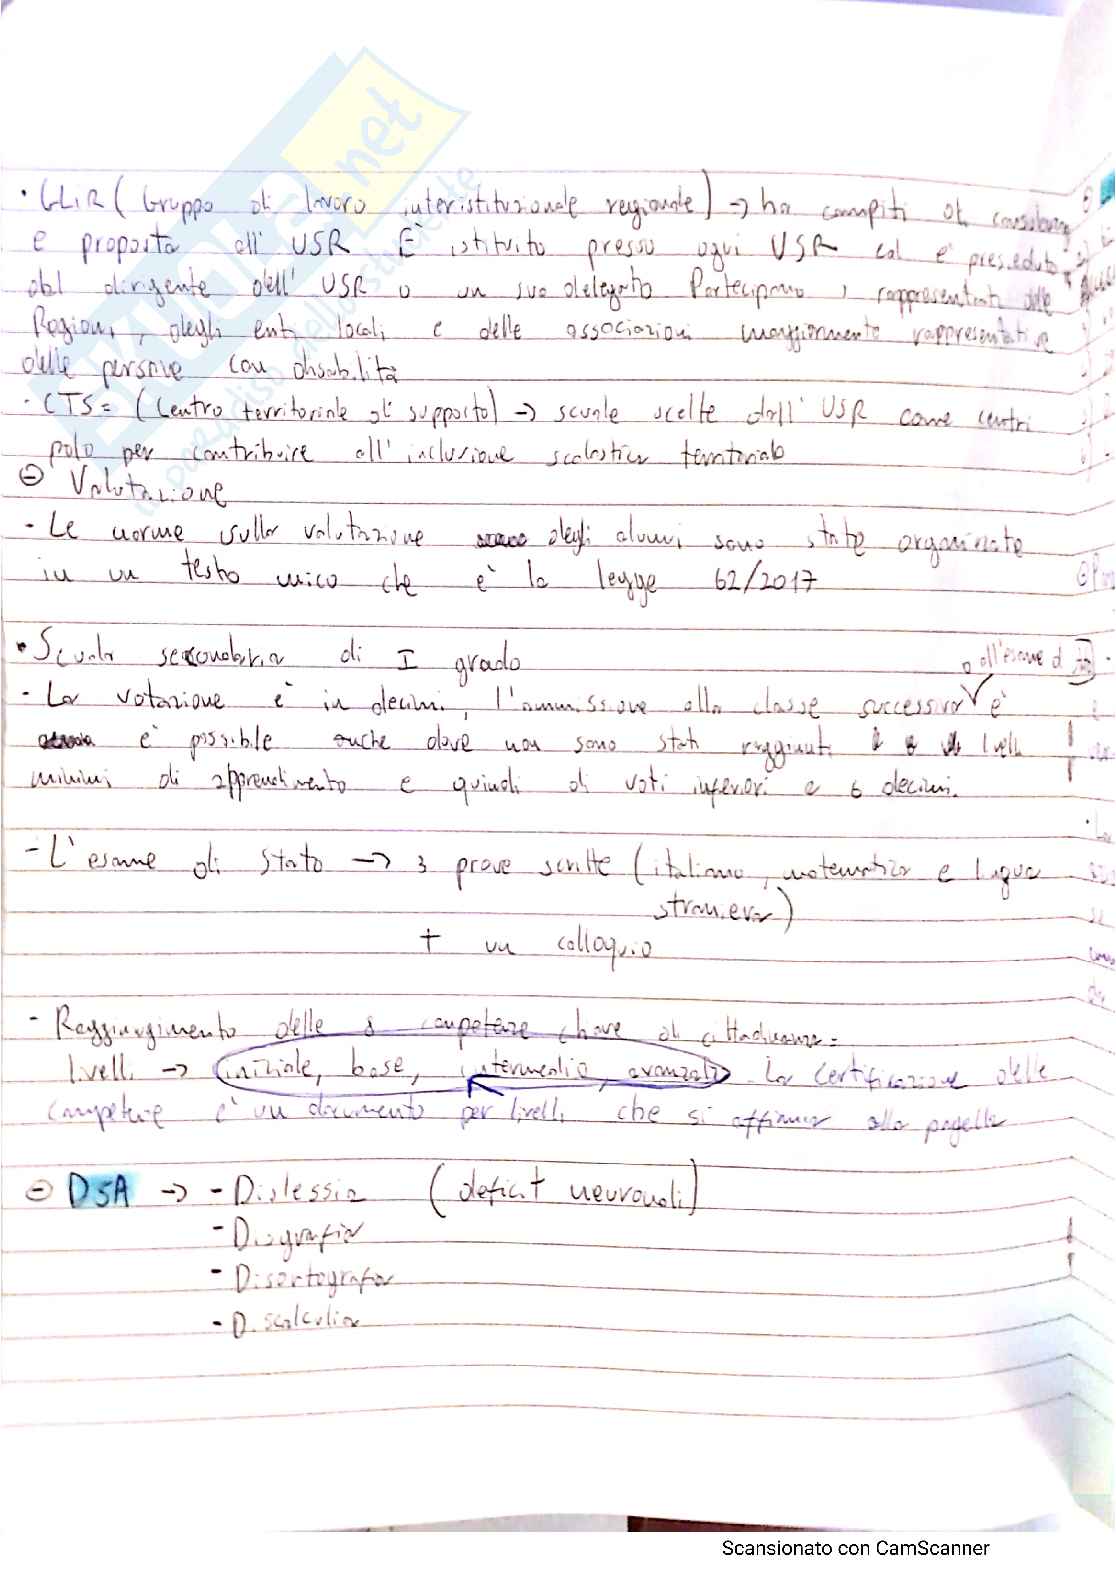 · GLIR (Gruppo di lavoro interistituzionale regionale) → ha compiti di consulenza
e proposta all'USR È istituito presso ogni USR ed è presieduto
dal dirigente dell'USR o un suo delegato Partecipano i rappresentanti delle
Regioni, degli enti locali e delle associazioni maggiormente rappresentative
delle persone con disabilità
- CTS = (Centro territoriale di supporto) → scuole scelte dall'USR come centri
polo per contribuire all'inclusione scolastica territoriale
⊖ Valutazione
- Le norme sulla valutazione degli alunni sono state organizzate
in un testo unico che è la legge 62/2017
• Scuola secondaria di I grado
o all'esame di
- La votazione è in decimi, l'ammissione alla classe successiva è
è possibile anche dove non sono stati raggiunti i livelli
minimi di apprendimento e quindi di voti inferiori a 6 decimi.
- L'esame di Stato → 3 prove scritte (italiano, matematica e lingua
straniera)
+ un colloquio
- Raggiungimento delle 8 competenze chiave di cittadinanza=
livelli → iniziale, base, intermedio, avanzato. La certificazione delle
competenze è un documento per livelli che si affianca alla pagella
⊖ DSA → - Dislessia (deficit neuronali)
- Disgrafia
- Disortografia
- Discalculia
Scansionato con CamScanner
skuola.net
il paradiso dello studente